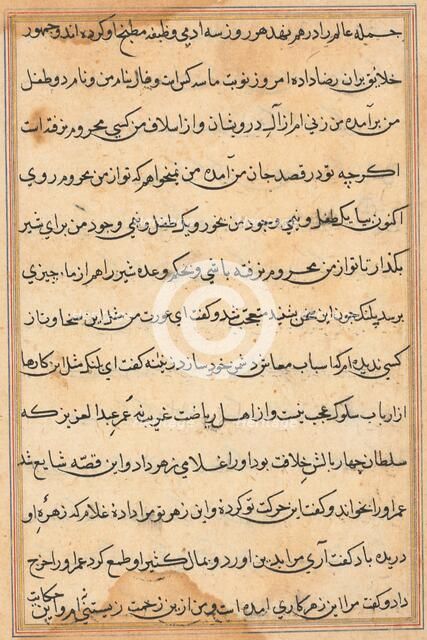 جمله عالم را در هر بقعه هر روز سه آدمی وظیفه مطبخ او کرده اند و جمهور
خلائق بران رضا داده امروز نوبت ما سه کس است و فال بنام من و نام دو طفل
من برآمده من زنی ام از آل درویشان و از اسلاف من کسی محروم نرفته است
اگر چه تو در قصد جان من آمده من نمیخواهم که تو از من محروم روی
اکنون بیا یک طفل و نیمی وجود من بخور و یک طفل و نیمی وجود من برای شیر
بگذار تا تو از من محروم نرفته باشی و بحکم وعده شیر را هم از ما چیزی
برسد پلنک چون این سخن بشنید متعجب شد و گفت ای عورت من مثل این سخاوت از
کسی ندیده ام که اسباب معاش دشمن خود سازد زن گفت ای پلنک مثل این کارها
از ارباب سلوک عجب نیست و از اهل ریاضت غریب نه عمر عبد العزیز که
سلطان چهار بالش خلافت بود او را غلامی زهر داد و این قصه شایع شد
عمر او را بخواند و گفت این حرکت تو کرده و این زهر تو مرا داده غلام که زهره او
دریده باد گفت آری مرا بدین آورد و بمال کثیر او طمع کرد عمر او را خرج
داد و گفت مرا این زهر کاری آمده است و من ازین زحمت زیستنی ام و این حکایت